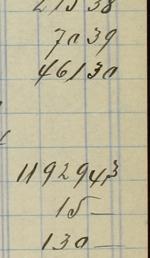 70 39
461 30
11929 43
15 —
130 —